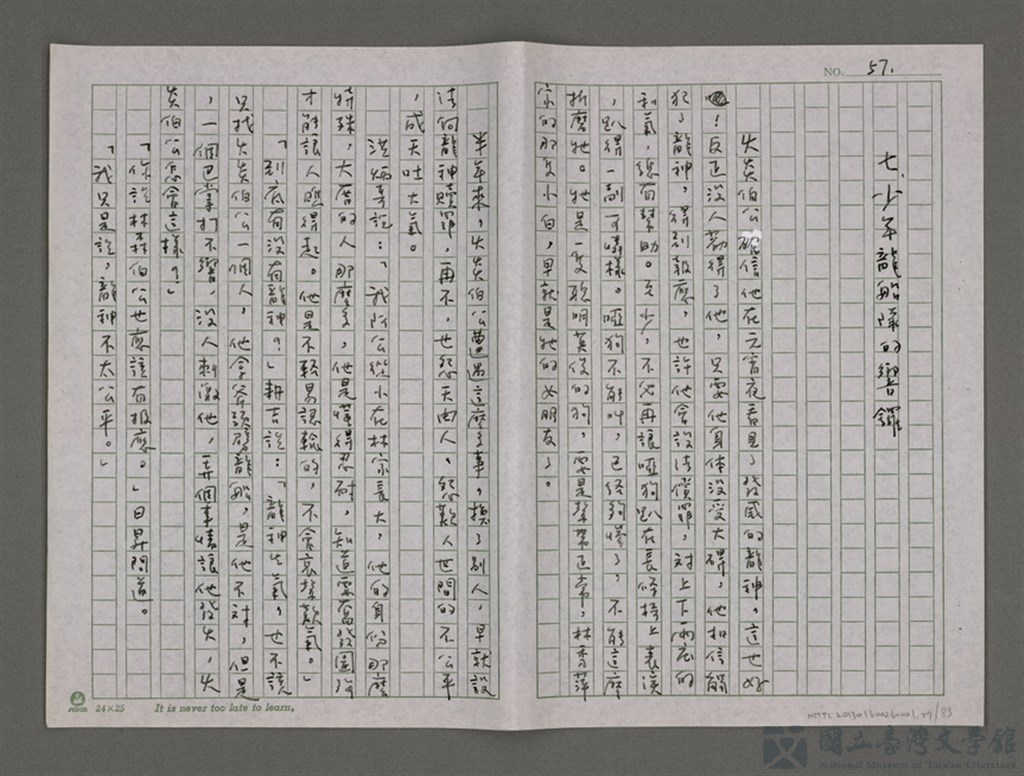 NO. 57.
七、少年龍船隊的響鑼
火炎伯公確信他在元宵夜看見了發威的龍神。這也好
！反正沒人勸得了他，只要他身体沒受大礙，他相信觸
犯了龍神，得到報應，也許他會設法償罪，対上下兩庄的
和氣，總有幫助。至少，不必再讓啞狗趴在長條椅上表演
，趴得一副可憐樣。啞狗不能叫，已経夠慘了，不能這麼
折磨牠。牠是一隻聰明英俊的狗，要是聲帶正常，林秀萍
家的那隻小白，早就是牠的女朋友了。
半年來，火炎伯公遭遇這麼多事，換了別人，早就設
法向龍神贖罪，再不，也怨天尤人、怨歎人世間的不公平
，成天吐大氣。
洪炳昌說：「我阿公從小在林家長大，他的身份那麼
特殊，大厝的人那麼多，他是懂得忍耐，知道要奮發圖強
才能讓人瞧得起。他是不輕易認輸的，不會哀聲歎氣。」
「到底有没有龍神？」耕吉說：「龍神生氣，也不該
只找火炎伯公一個人，他拿斧頭劈龍船，是他不対，但是
，一個巴掌打不響，没人刺激他，弄個事情讓他發火，火
炎伯公怎會這樣？」
「你說林森伯公也應該有报應。」日昇問道。
「我只是說，龍神不太公平。」
24×25 It is never too late to learn.
國立臺灣文學館
National Museum of Taiwan Literature